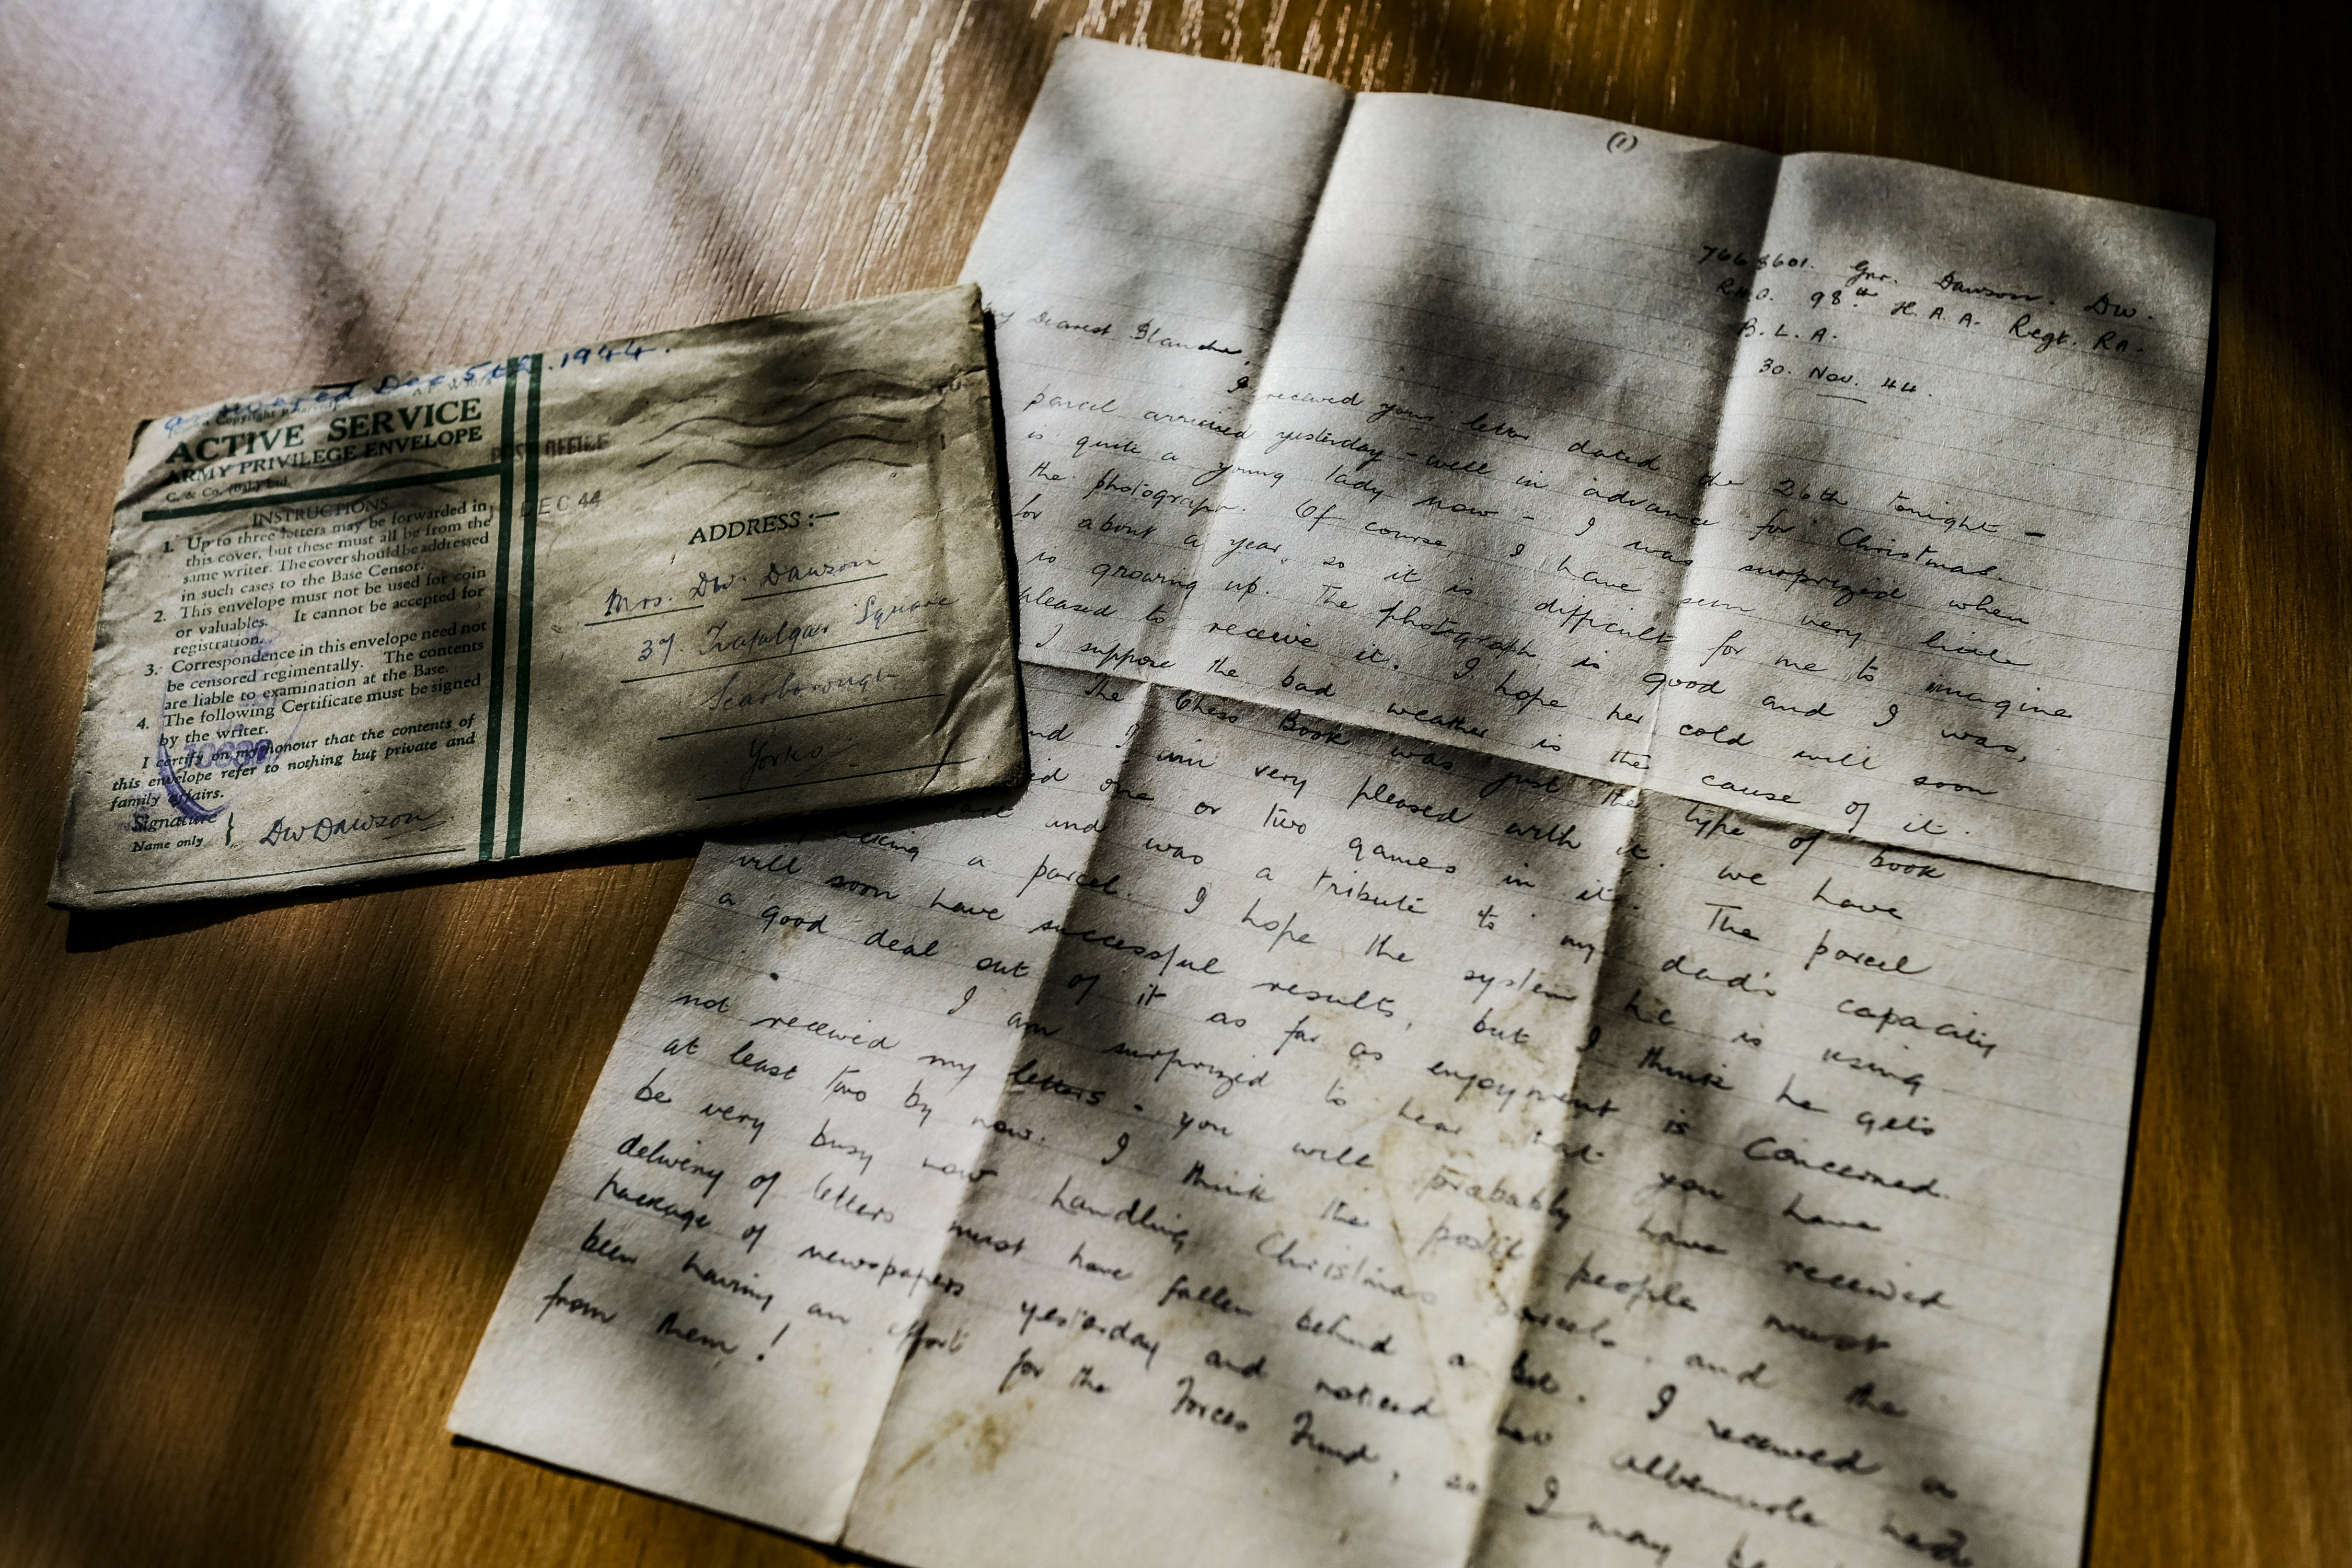 answered Dec 5th. 1944.
ACTIVE SERVICE
ARMY PRIVILEGE ENVELOPE
C. & Co. Ltd.
INSTRUCTIONS
1. Up to three letters may be forwarded in
this cover, but these must all be from the
same writer. The cover should be addressed
in such cases to the Base Censor.
2. This envelope must not be used for coin
or valuables. It cannot be accepted for
registration.
3. Correspondence in this envelope need not
be censored regimentally. The contents
are liable to examination at the Base.
4. The following Certificate must be signed
by the writer.
I certify on my honour that the contents of
this envelope refer to nothing but private and
family affairs.
Signature
Name only } DW Dawson.
POST OFFICE
DEC 44
ADDRESS :—
Mrs. DW. Dawson
37. Trafalgar Square
Scarborough
Yorks
(1)
Gnr. Dawson. DW.
R.H.Q. 98th H.A.A. Regt. RA.
B.L.A.
30. Nov. 44.
My Dearest Blanche,
I received your letter dated the 26th tonight —
parcel arrived yesterday - well in advance for Christmas.
is quite a young lady now - I was surprized when
the photograph. Of course, I have seen very little
for about a year, so it is difficult for me to imagine
is growing up. The photograph is good and I was,
pleased to receive it. I hope her cold will soon
I suppose the bad weather is the cause of it.
The Chess Book was just the type of book
and I am very pleased with it. We have
one or two games in it. The parcel
and was a tribute to my dad's capacity
packing a parcel. I hope the system he is using
will soon have successful results, but I think he gets
a good deal out of it as far as enjoyment is concerned.
I am surprized to hear that you have
not received my letters - you will probably have received
at least two by now. I think the postal people must
be very busy now handling Christmas parcels, and the
delivery of letters must have fallen behind a bit. I received a
package of newspapers yesterday and noticed
been having an effort for the Forces Fund, so I may
from them!